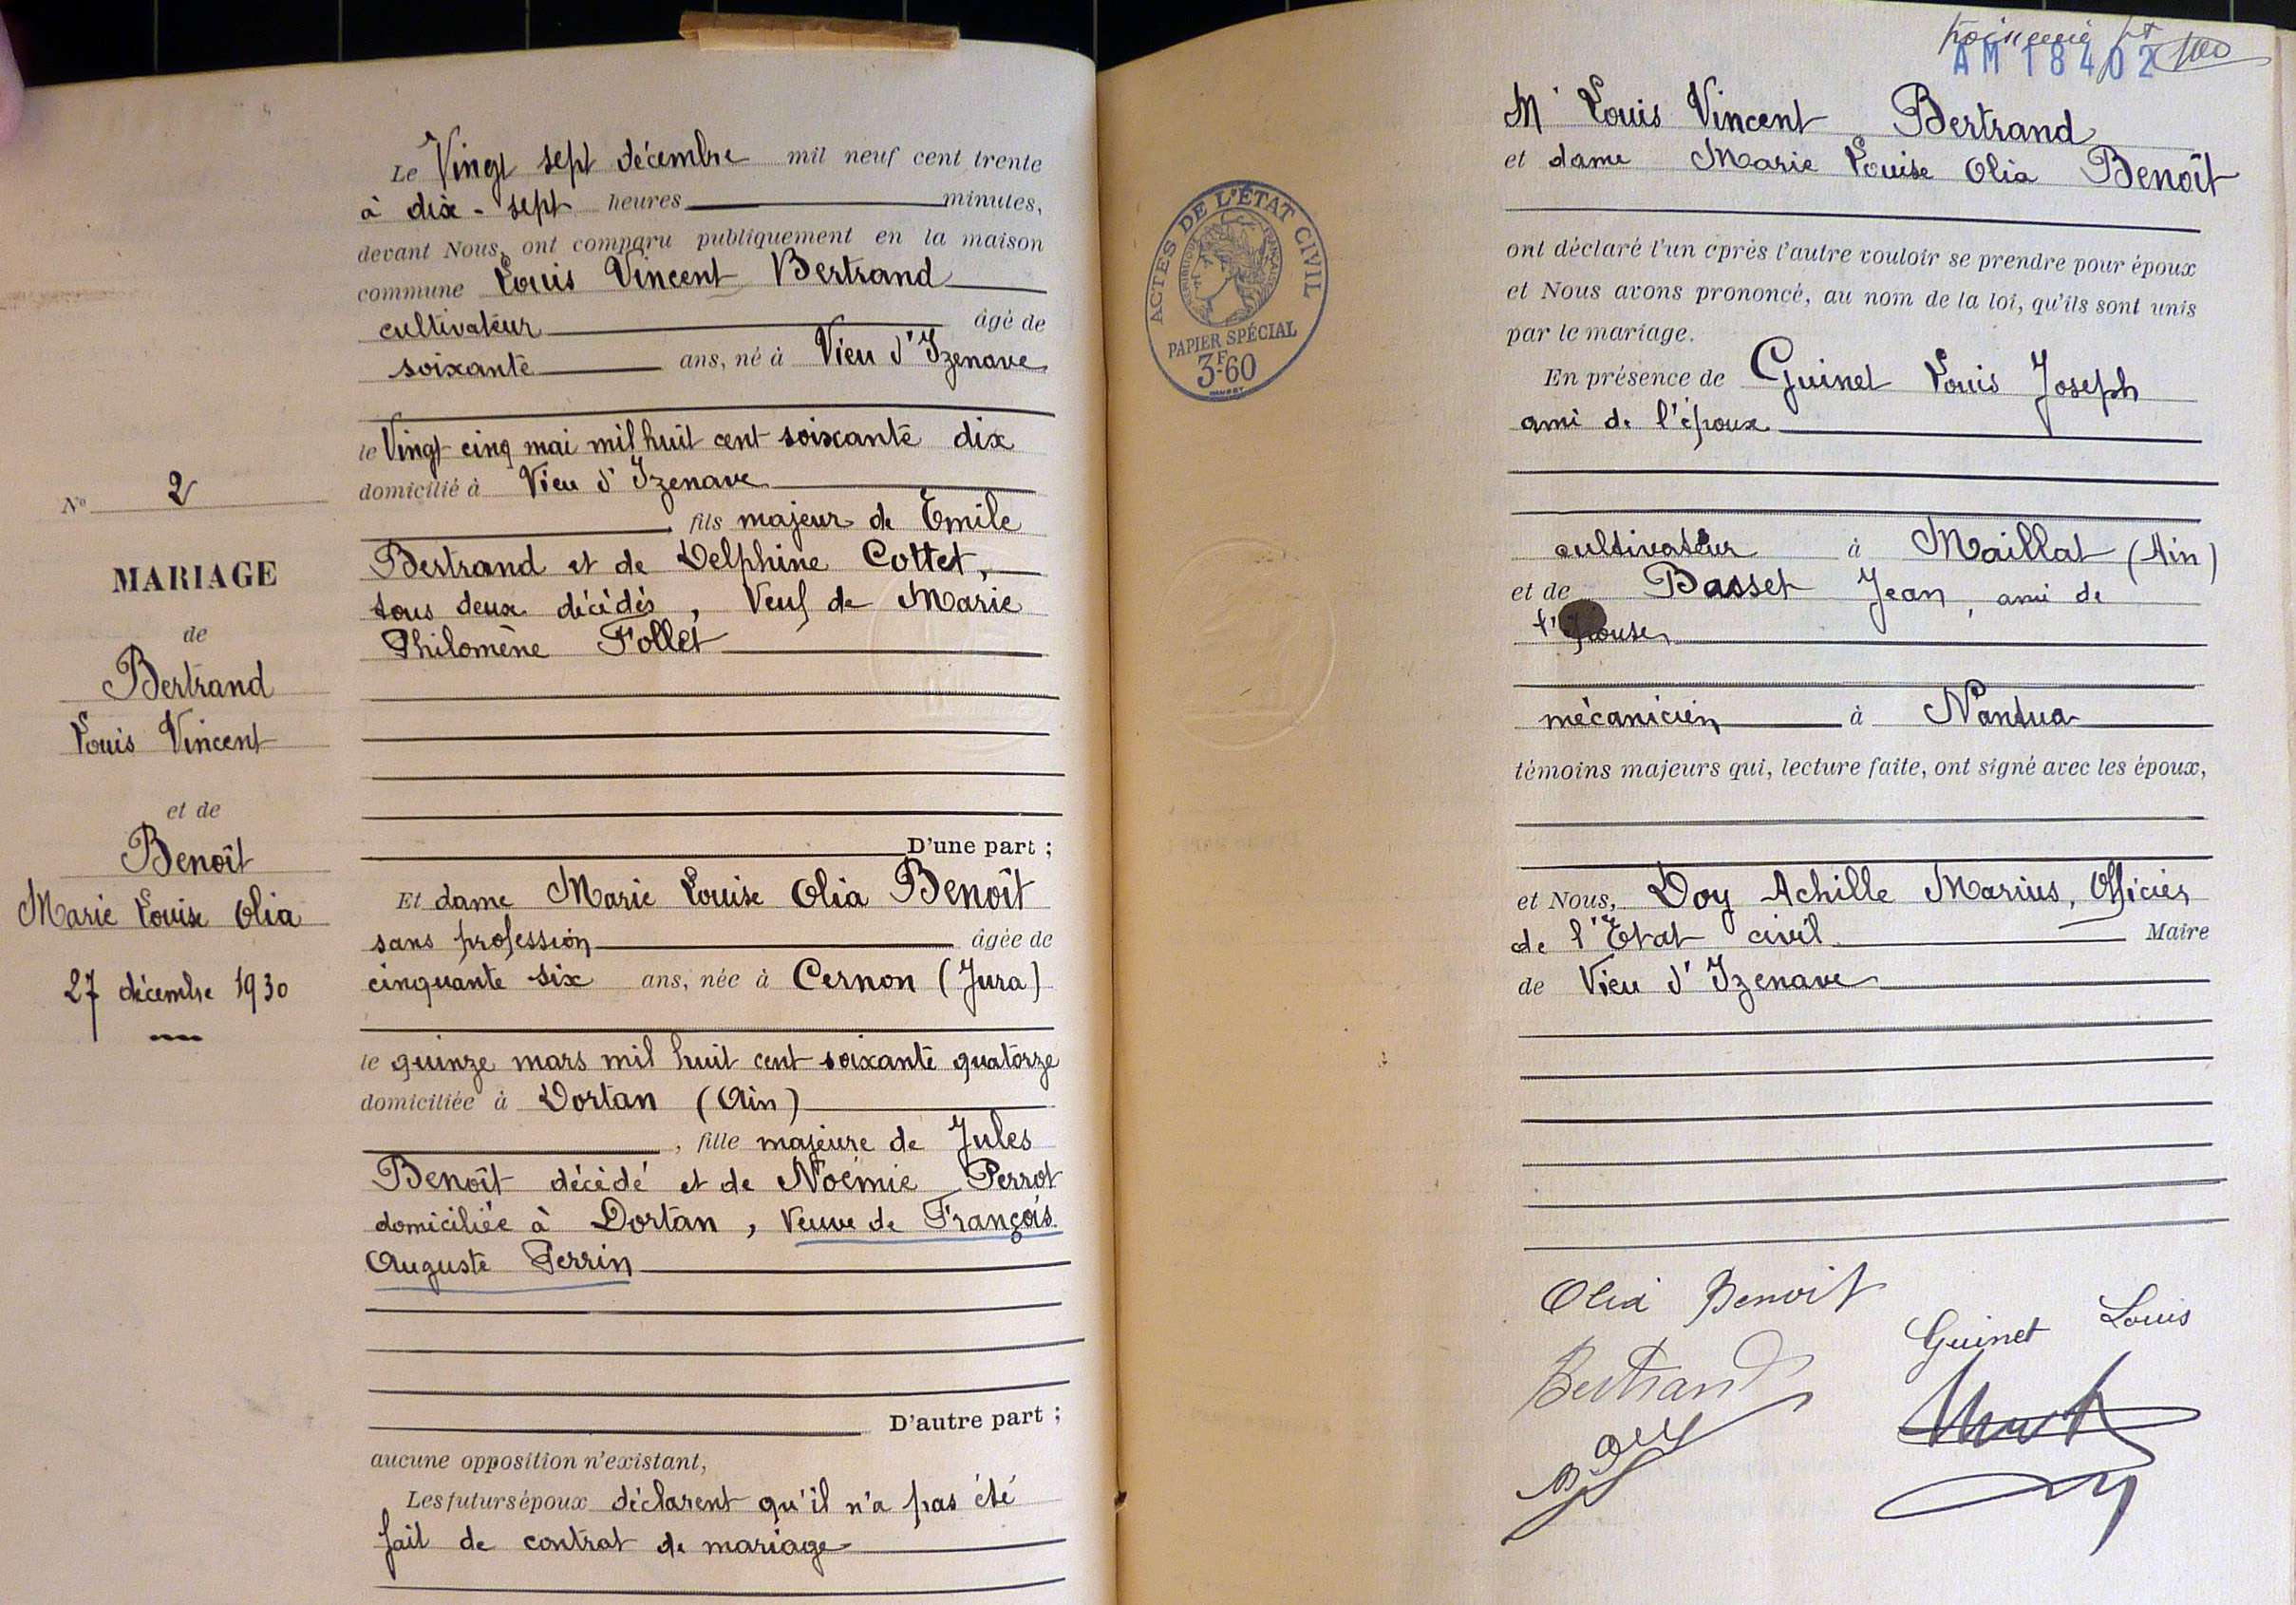 Le Vingt sept décembre mil neuf cent trente
à dix-sept heures minutes,
devant Nous, ont comparu publiquement en la maison
commune Louis Vincent Bertrand
cultivateur âgé de
soixante ans, né à Vieu d'Izenave
le Vingt-cinq mai mil huit cent soixante dix
domicilié à Vieu d'Izenave
fils majeur de Emile
Bertrand et de Delphine Cottet,
tous deux décédés, Veuf de Marie
Philomène Follet
D'une part ;
Et dame Marie Louise Olia Benoît
sans profession âgée de
cinquante six ans, née à Cernon (Jura)
le quinze mars mil huit cent soixante quatorze
domiciliée à Dortan (Ain)
, fille majeure de Jules
Benoît décédé et de Noémie Perrot
domiciliée à Dortan, Veuve de François
Auguste Perrin
D'autre part ;
aucune opposition n'existant,
Les futurs époux déclarent qu'il n'a pas été
fait de contrat de mariage
N° 2
MARIAGE
de
Bertrand
Louis Vincent
et de
Benoît
Marie Louise Olia
27 décembre 1930
AM 18402
100
M. Louis Vincent Bertrand
et dame Marie Louise Olia Benoît
ont déclaré l'un après l'autre vouloir se prendre pour époux
et Nous avons prononcé, au nom de la loi, qu'ils sont unis
par le mariage.
En présence de Guinet Louis Joseph
ami de l'époux
cultivateur à Maillat (Ain)
et de Basset Jean, ami de
l'épouse
mécanicien à Nantua
témoins majeurs qui, lecture faite, ont signé avec les époux,
et Nous, Doy Achille Marius, Officier
de l'Etat civil Maire
de Vieu d'Izenave
ACTES DE L'ÉTAT CIVIL
RÉPUBLIQUE FRANÇAISE
PAPIER SPÉCIAL
3F60
Olia Benoit
Guinet Louis
Bertrand
Doy